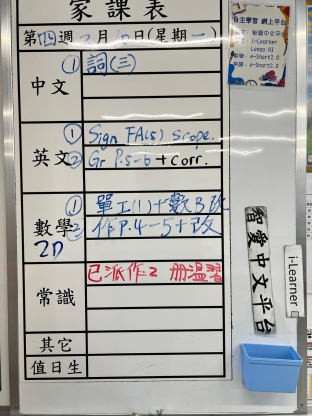 家課表
第四週 月 日(星期一)
中文
①詞(三)
英文
①Sign FA(5) Scope.
②Gr P.5-6 + Corr.
數學
2D
①單工(1)+數B改
②作P.4-5+改
常識
已派作2冊溫習
其它
值日生
自主學習 網上平台
智愛中文平台
i-Learner